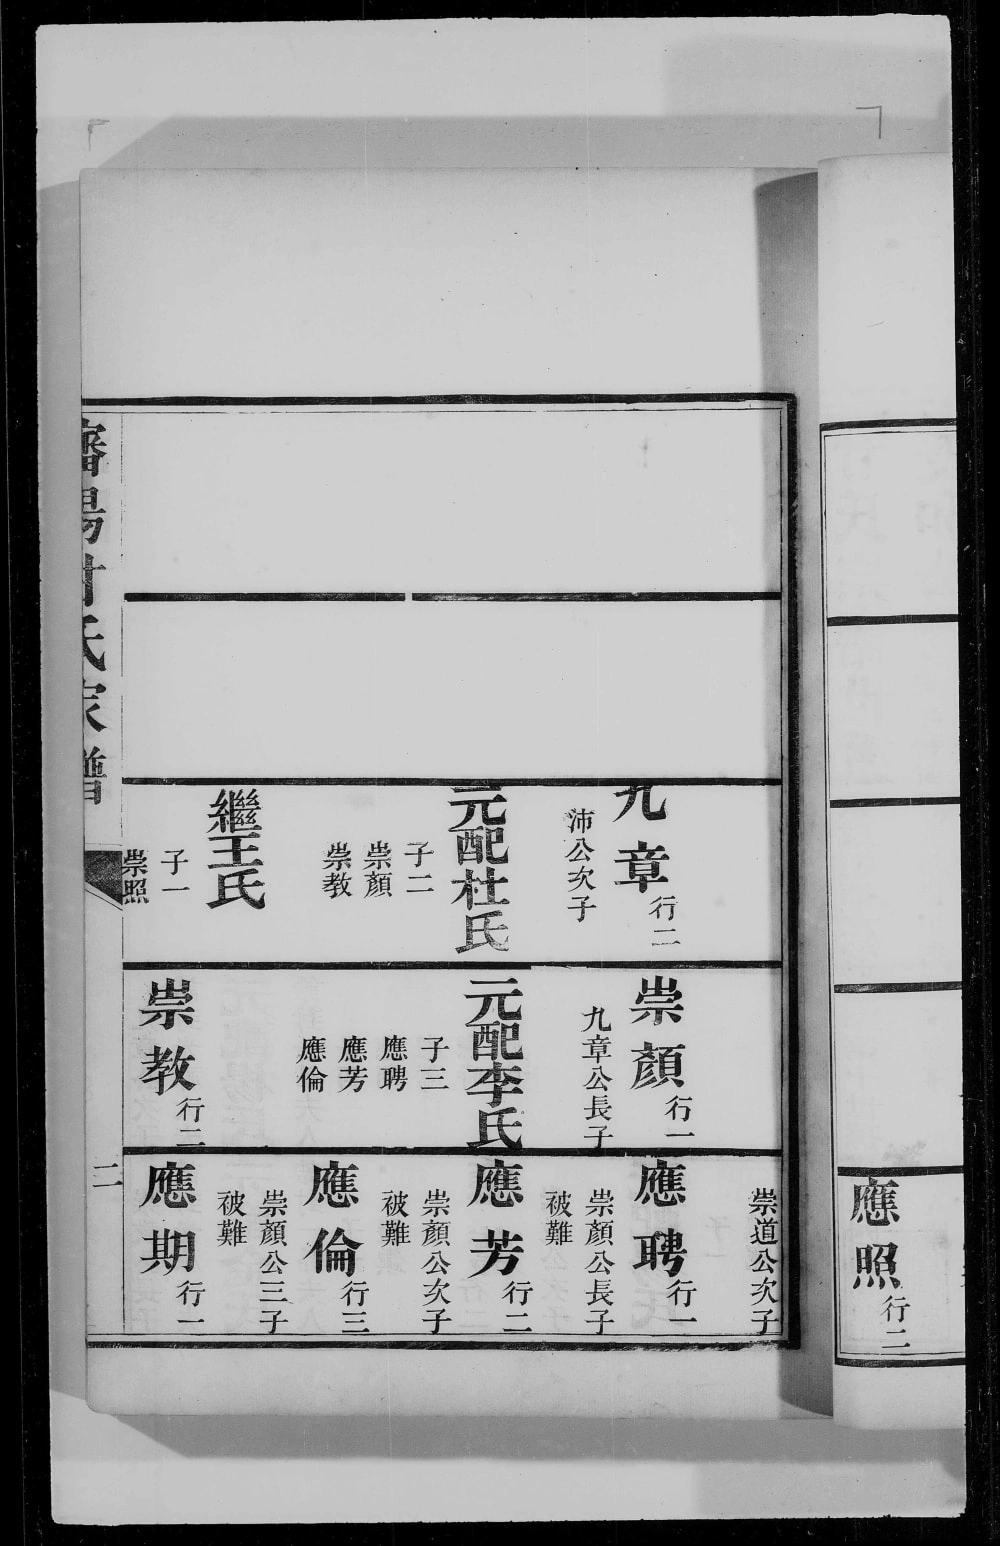 應照 行二
九章 行二
沛公次子
元配杜氏
子二
崇顏
崇教
繼王氏
子一
崇照
崇顏 行一
九章公長子
元配李氏
子三
應聘
應芳
應倫
崇教 行二
崇道公次子
應聘 行一
崇顏公長子
被難
應芳 行二
崇顏公次子
被難
應倫 行三
崇顏公三子
被難
應期 行一
瀋陽甘氏家譜
二